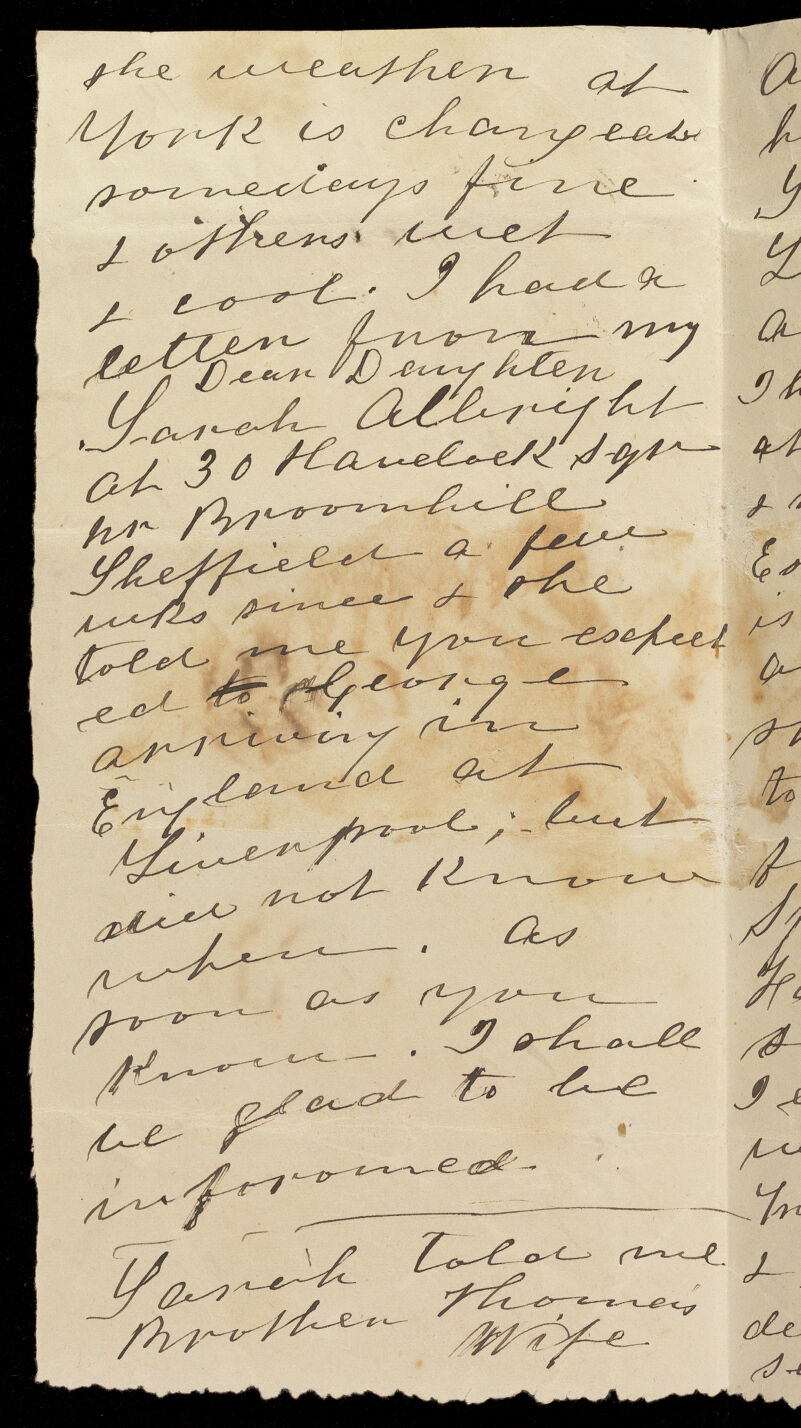 the weather at
York is changeabl
somedays fine
& others wet
& cool. I had a
letter from my
Dear Daughter
Sarah Allbright
at 30 Havelock Sqr
nr Broomhill
Sheffield a few
wks since & she
told me you expect
ed to George
arriving in
England at
Liverpool; but
did not know
when. As
soon as you
Know. I shall
be glad to be
informed.
Sarah told me
Brother Thomas
Wife